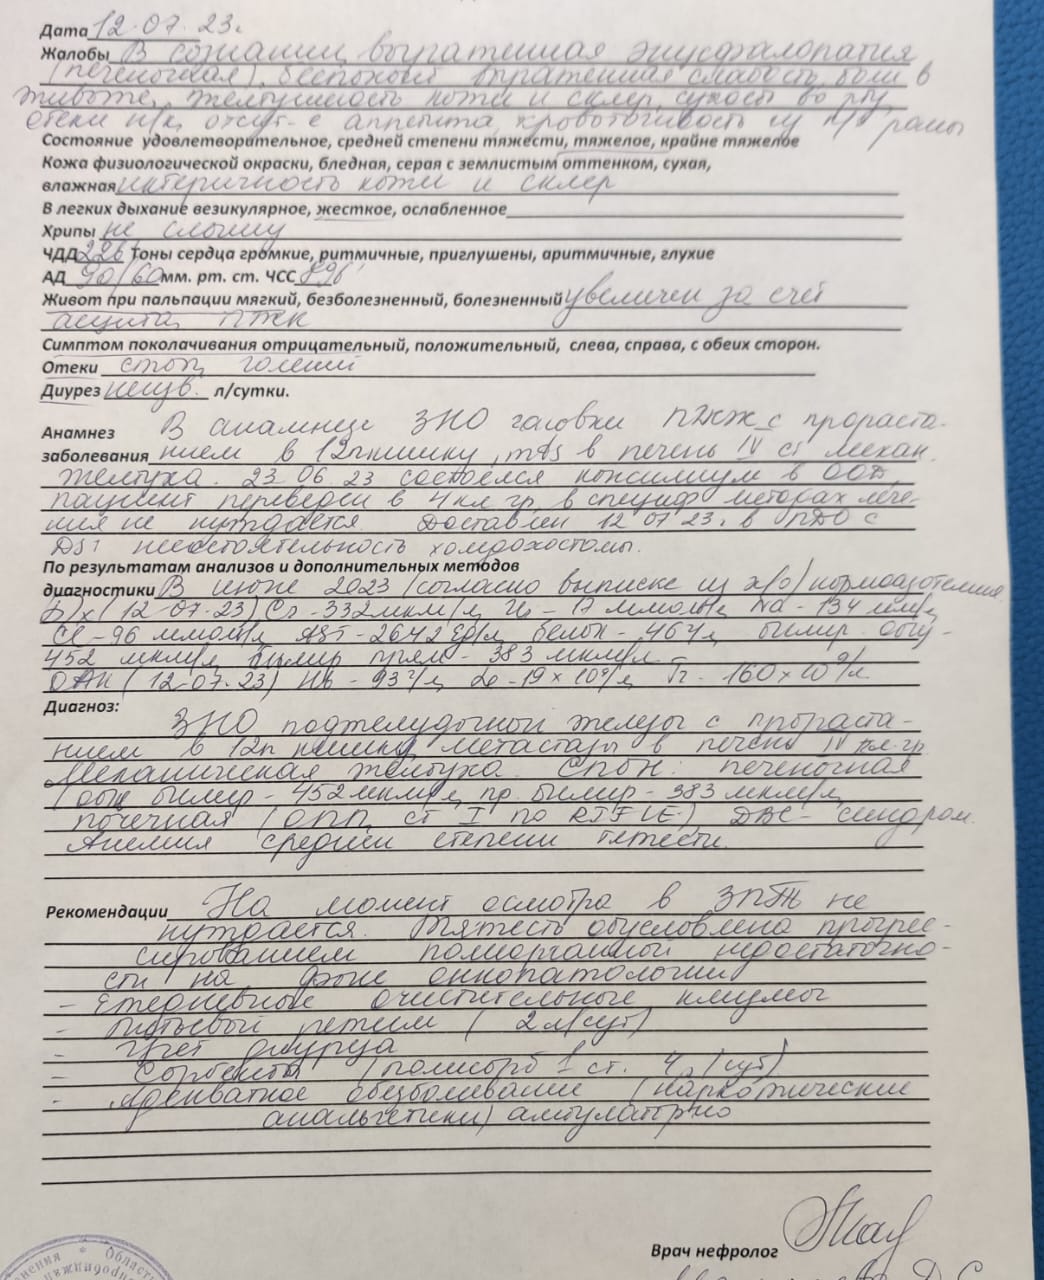 Дата 12.07.23.
Жалобы В сознании, выраженная энцефалопатия
(печеночная), беспокоит выраженная слабость, боли в
животе, желтушность кожи и склер, сухость во рту,
отеки н/к, отсут-е аппетита, кровоточивость из п/о раны
Состояние удовлетворительное, средней степени тяжести, тяжелое, крайне тяжелое
Кожа физиологической окраски, бледная, серая с землистым оттенком, сухая,
влажная иктеричность кожи и склер
В легких дыхание везикулярное, жесткое, ослабленное
Хрипы не слышу
ЧДД 22б' Тоны сердца громкие, ритмичные, приглушены, аритмичные, глухие
АД 90/60 мм. рт. ст. ЧСС
Живот при пальпации мягкий, безболезненный, болезненный увеличен за счет
асцита, ПЖК
Симптом поколачивания отрицательный, положительный, слева, справа, с обеих сторон.
Отеки стоп, голеней
Диурез неизв. л/сутки.
Анамнез В анамнезе ЗНО головки ПЖЖ с прораста-
заболевания нием в 12п кишку, mts в печень IV ст механ.
желтуха. 23.06.23 состоялся консилиум в ООД
пациент переведен в 4 кл гр. в специф методах лече-
ния не нуждается. Доставлен 12.07.23. в ПДО с
Ds: несостоятельность холедохостомы.
По результатам анализов и дополнительных методов
диагностики В июне 2023 (согласно выписке из х/о) нормоазотемия.
Б/х (12.07.23) Cr - 332 мкм/л, - 17 ммоль/л, Na - 134 мм/л,
Cl - 96 ммоль/л, AST - 2642 Ед/л, белок - 46 г/л, билир. общ -
452 мкм/л, билир прям - 383 мкм/л.
ОАК (12.07.23) Hb - 93 г/л, Le - 19 × 10⁹/л, Тг - 160 × 10⁹/л.
Диагноз:
ЗНО поджелудочной железы с прораста-
нием в 12п кишку, метастазы в печень IV кл.гр.
Механическая желтуха. СПОН: печеночная
(общ билир - 452 мкм/л, пр. билир - 383 мкм/л,
почечная (ОПП ст I по RIFLE) ДВС - синдром.
Анемия средней степени тяжести.
Рекомендации На момент осмотра в ЗПТ не
нуждается. Тяжесть обусловлена прогрес-
сированием полиорганной недостаточно-
сти на фоне онкопатологии
- Ежедневные очистительные клизмы
- питьевый режим (2 л/сут)
- учет диуреза
- Сорбенты (полисорб 1 ст. (сут)
- Адекватное обезболивание (наркотические
анальгетики) амбулаторно
Врач нефролог